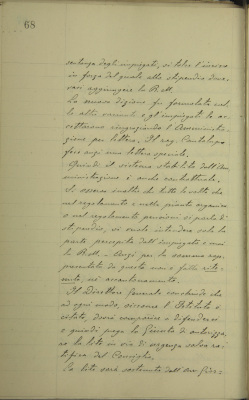 68
sentenza degli impiegati, si tolse l'inciso
in forza del quale allo stipendio dove-
vasi aggiungere la R. M.
La nuova dizione fu formulata
altri e gl'impiegati la ac-
cettarono ringraziando l'Amministra-
zione per lettera. Il rag. Cantalupo
fece anzi una lettera speciale.
Quindi il sistema stabilito dall'Am-
ministrazione è anche contrattuale.
Si osservi inoltre che tutte le volte che
nel regolamento e nella pianta organica
o nel regolamento pensioni si parla di
stipendio, si vuole intendere solo la
parte percepita dall'impiegato e non
la R. M. Anzi per la somma rap-
presentata da questa non è fatta rite-
nuta, nè accantonamento.
Il Direttore Generale conchiude che
ad ogni modo, siccome l'Istituto è
citato, dovrà comparire a difendersi
e quindi prega la Giunta di autorizza-
re la lite in via di urgenza salvo ra-
tifica del Consiglio.
La lite sarà sostenuta dall'Avv.